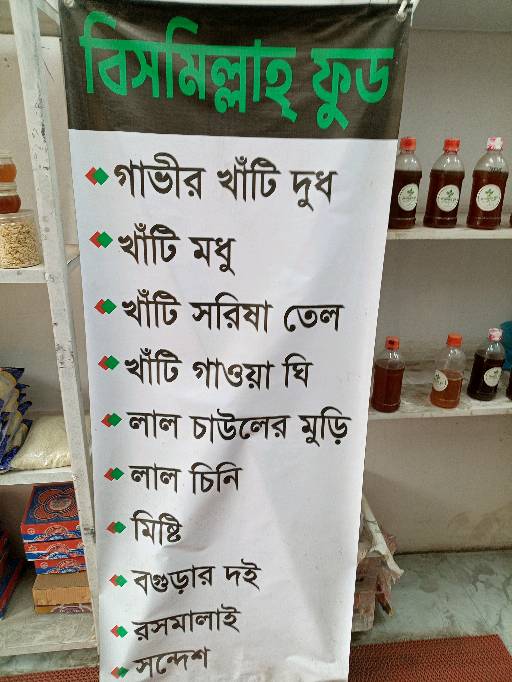 বিসমিল্লাহ্ ফুড
গাভীর খাঁটি দুধ
খাঁটি মধু
খাঁটি সরিষা তেল
খাঁটি গাওয়া ঘি
লাল চাউলের মুড়ি
লাল চিনি
মিষ্টি
বগুড়ার দই
রসমালাই
সন্দেশ